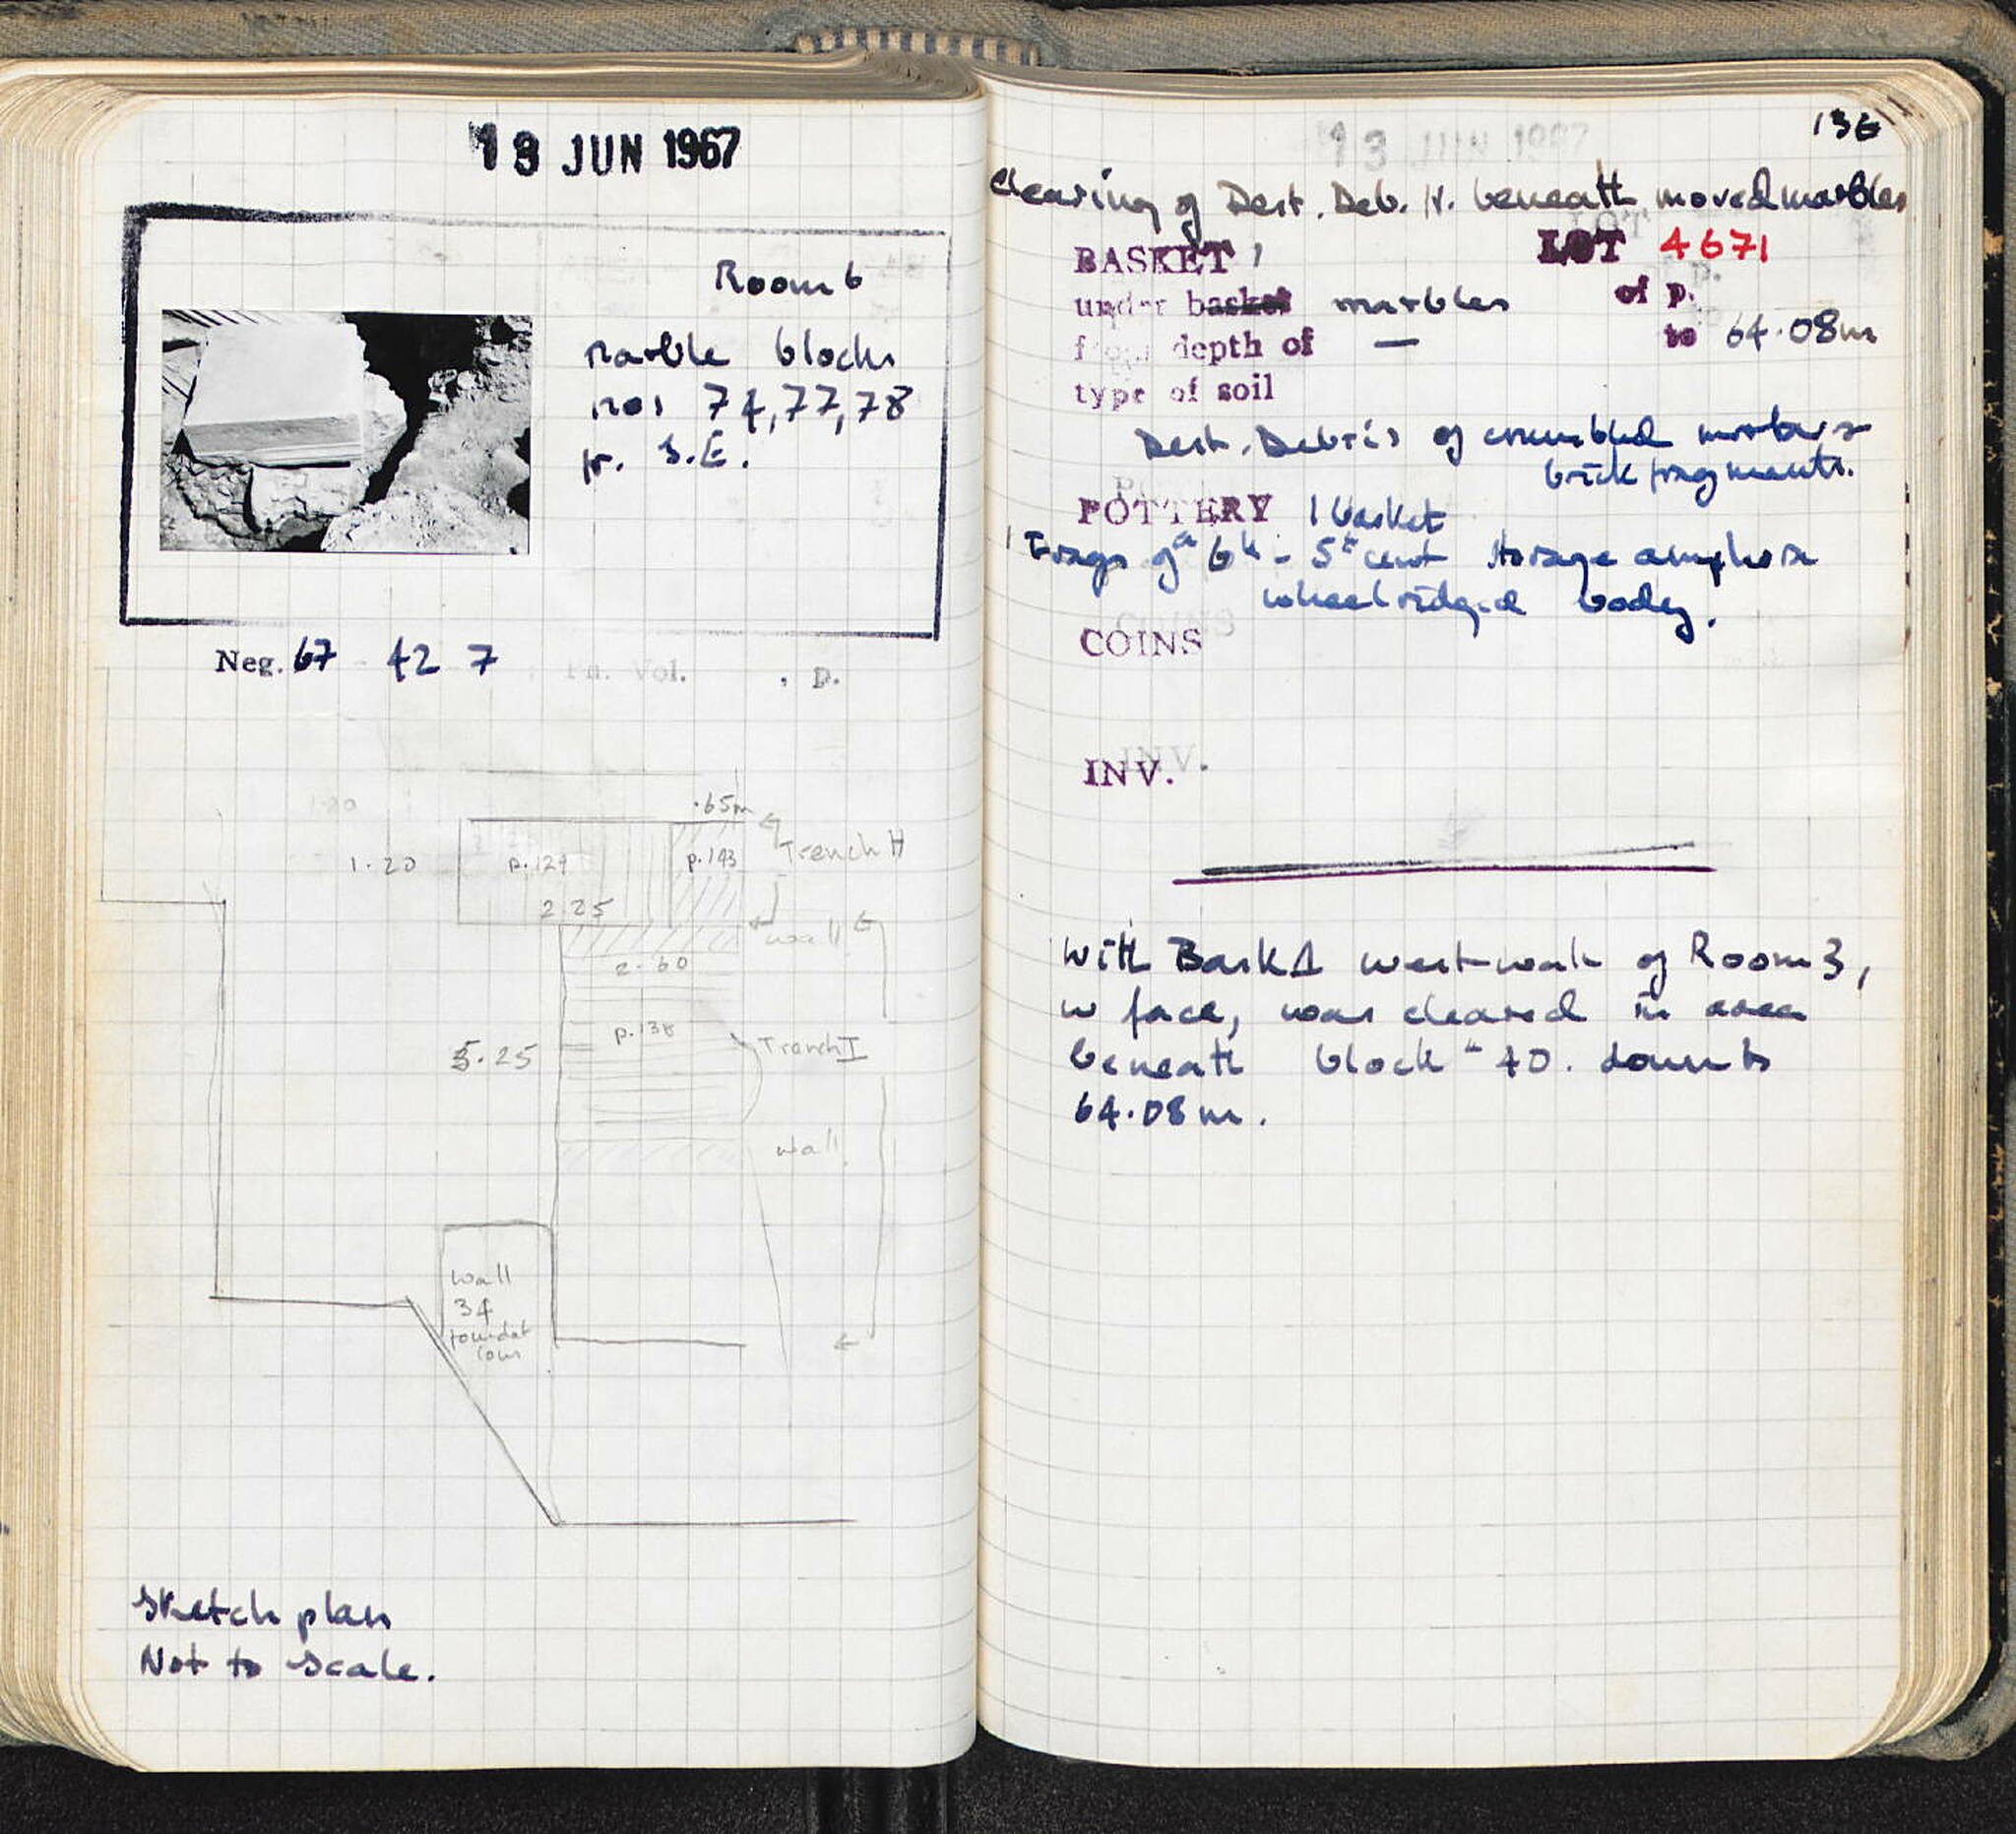 13 JUN 1967
Room 6
Marble blocks
nos 74, 77, 78
fr. S.E.
Neg. 67 - 42 7
, Ph. Vol. , p.
.65m
1.20
p. 129
p. 143
Trench H
2.25
wall
2.60
p. 138
5.25
Trench I
wall
wall
34
foundat
ions
Sketch plan
Not to scale.
136
13 JUN 1967
Clearing of Dest. Deb. H. beneath moved marbles
BASKET 1
LOT 4671
under basket marbles
of p.
from depth of —
to 64.08m
type of soil
Dest. Debris of crumbled mortar
brick fragments.
POTTERY 1 basket
1 Frags of a 6th - 5th cent storage amphora
wheelridged body.
COINS
INV.
With Bask 1 west wall of Room 3,
w face, was cleared in area
beneath block # 40. down to
64.08 m.